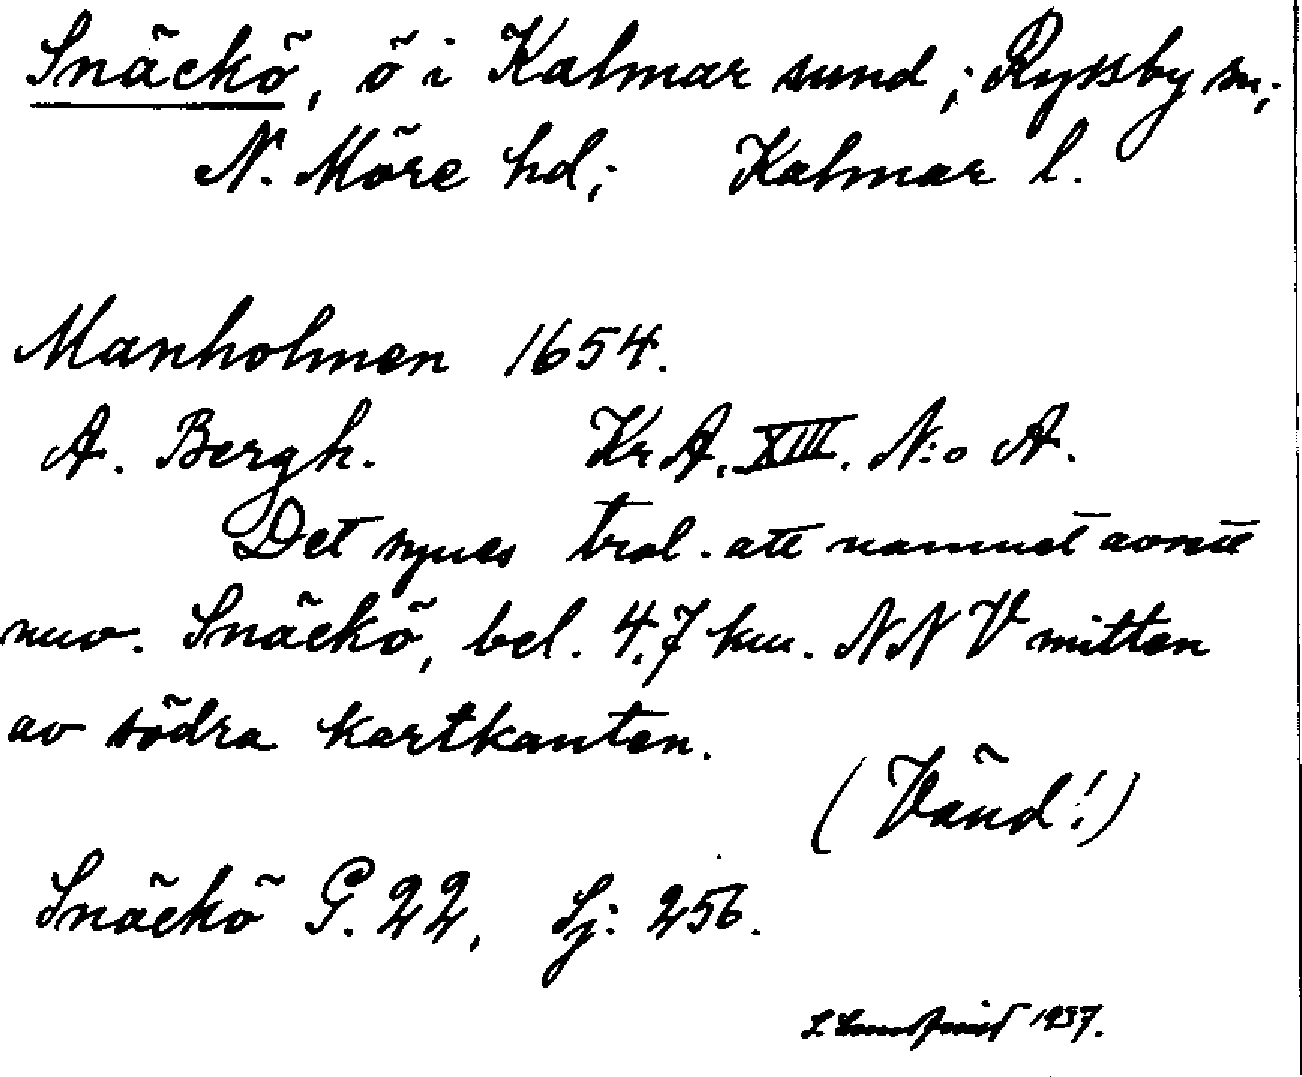 Snäckö, ö i Kalmar sund; Ryssby sn;
N. Möre hd; Kalmar l.
Manholmen 1654.
A. Bergh. KrA. XIII. N:o A.
Det synes trol. att namnet avsett
nuv. Snäckö, bel. 4,7 km. NNV mitten
av södra kartkanten.
(Vänd!)
Snäckö G. 22, Sj: 256.
1937.